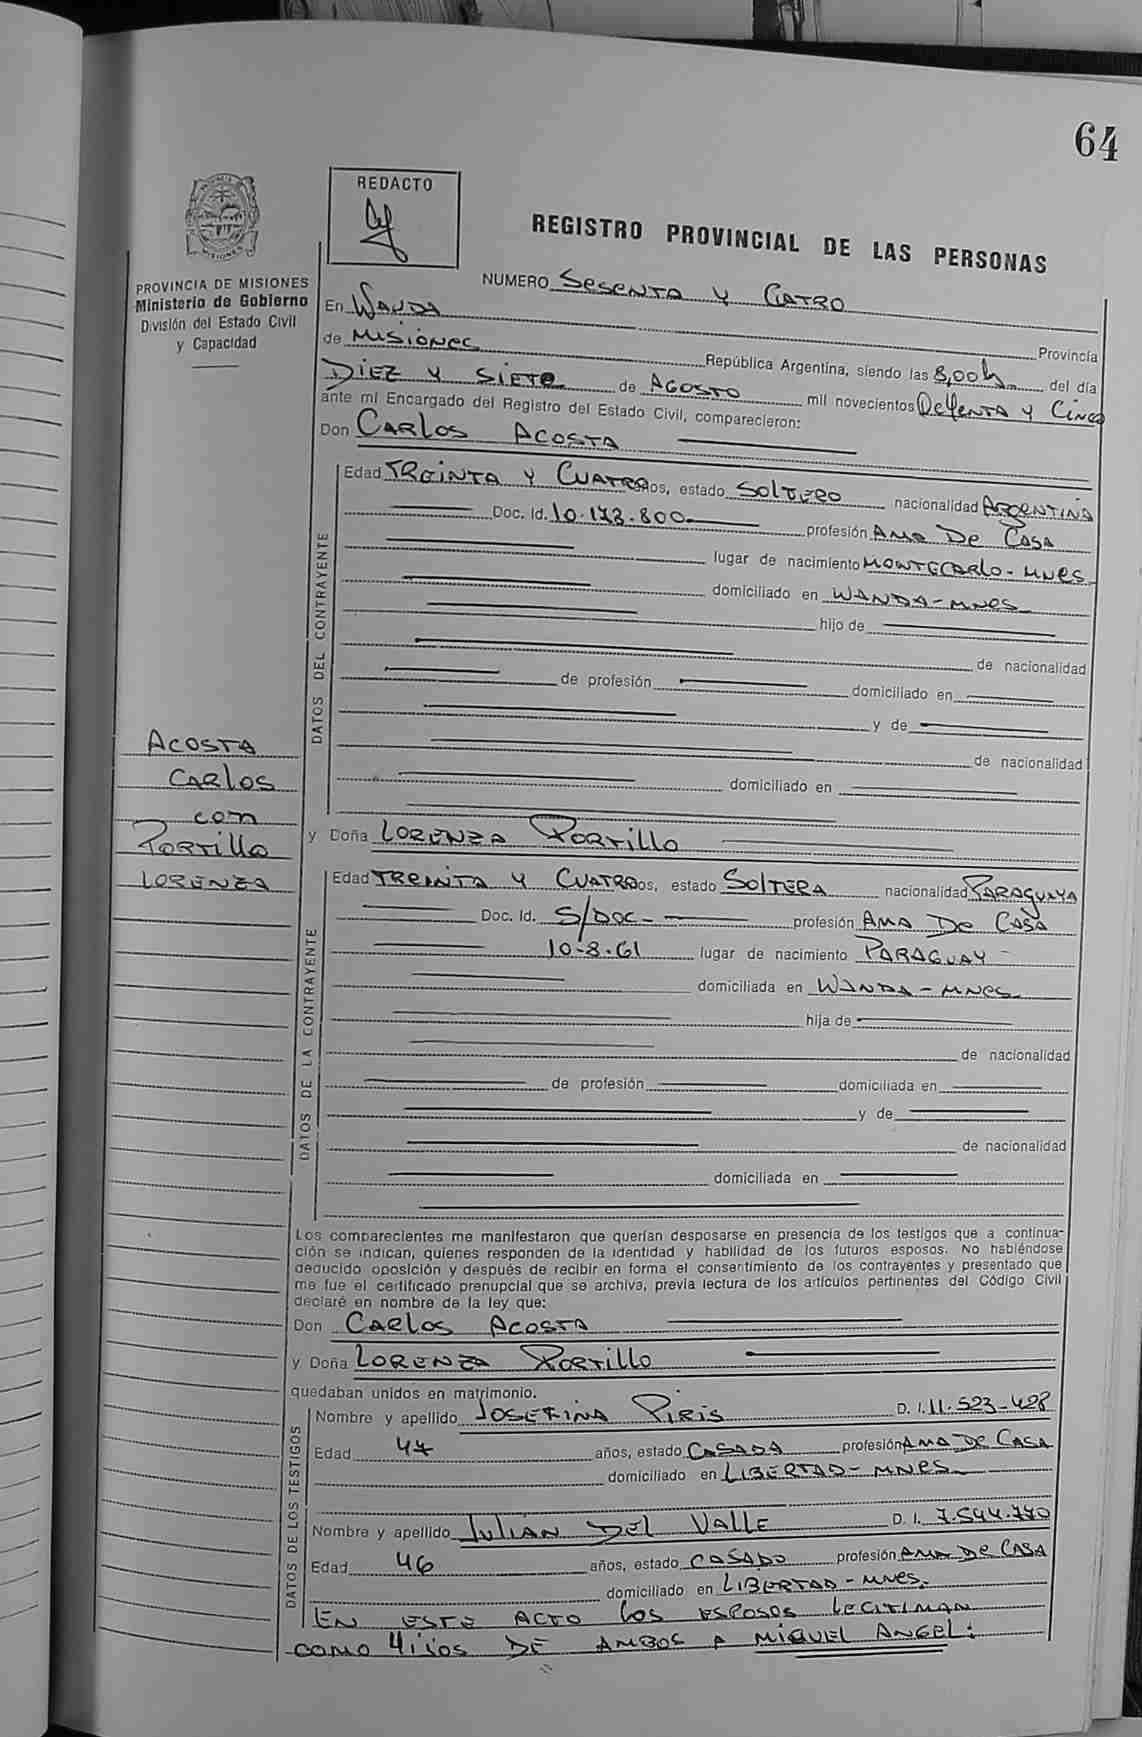 64
REDACTO
REGISTRO PROVINCIAL DE LAS PERSONAS
PROVINCIA DE MISIONES
Ministerio de Gobierno
División del Estado Civil
y Capacidad
NUMERO Sesenta y Cuatro
En Wanda
Provincia
de Misiones República Argentina, siendo las 8,00h del día
Diez y Siete de Agosto mil novecientos Ochenta y Cinco
ante mi Encargado del Registro del Estado Civil, comparecieron:
Don Carlos Acosta
DATOS DEL CONTRAYENTE
Edad Treinta y Cuatro años, estado Soltero nacionalidad Argentina
Doc. Id. 10.173.800 profesión Ama De Casa
lugar de nacimiento Montecarlo - Mnes
domiciliado en Wanda - Mnes
hijo de
de nacionalidad
de profesión domiciliado en
y de
de nacionalidad
domiciliado en
Acosta
Carlos
con
Portillo
Lorenza
y Doña Lorenza Portillo
DATOS DE LA CONTRAYENTE
Edad Treinta y Cuatro años, estado Soltera nacionalidad Paraguaya
Doc. Id. S/Doc- profesión Ama De Casa
10-8-61 lugar de nacimiento Paraguay
domiciliada en Wanda - Mnes
hija de
de nacionalidad
de profesión domiciliada en
y de
de nacionalidad
domiciliada en
Los comparecientes me manifestaron que querían desposarse en presencia de los testigos que a continua-
ción se indican, quienes responden de la identidad y habilidad de los futuros esposos. No habiéndose
deducido oposición y después de recibir en forma el consentimiento de los contrayentes y presentado que
me fue el certificado prenupcial que se archiva, previa lectura de los artículos pertinentes del Código Civil
declaré en nombre de la ley que:
Don Carlos Acosta
y Doña Lorenza Portillo
quedaban unidos en matrimonio.
DATOS DE LOS TESTIGOS
Nombre y apellido Josefina Piris D. I. 11.523-428
Edad 47 años, estado Casada profesión Ama De Casa
domiciliado en Libertad - Mnes
Nombre y apellido Julian Del Valle D. I. 7.544.770
Edad 46 años, estado Casado profesión Ama De Casa
domiciliado en Libertad - Mnes.
En este acto los esposos legitiman
como Hijos de ambos a Miguel Angel: